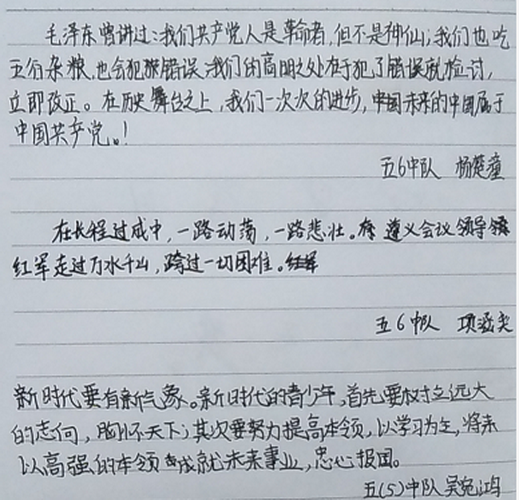 毛泽东曾讲过:我们共产党人是革命者,但不是神仙;我们也吃
五谷杂粮,也会犯错误,我们的高明之处在于犯了错误就检讨,
立即改正。在历史舞台之上,我们一次次的进步,中国未来的中国属于
中国共产党。!
五6中队 杨楚童
在长程过成中,一路动荡,一路悲壮。遵义会议领导
红军走过万水千山,跨过一切困难。
五6中队 项
新时代要有新气象。新时代的青少年,首先要树立远大
的志向,胸怀天下;其次要努力提高本领,以学习为主,将来
以高强的本领成就未来事业,忠心报国。
五(5)中队 吴宛鸿